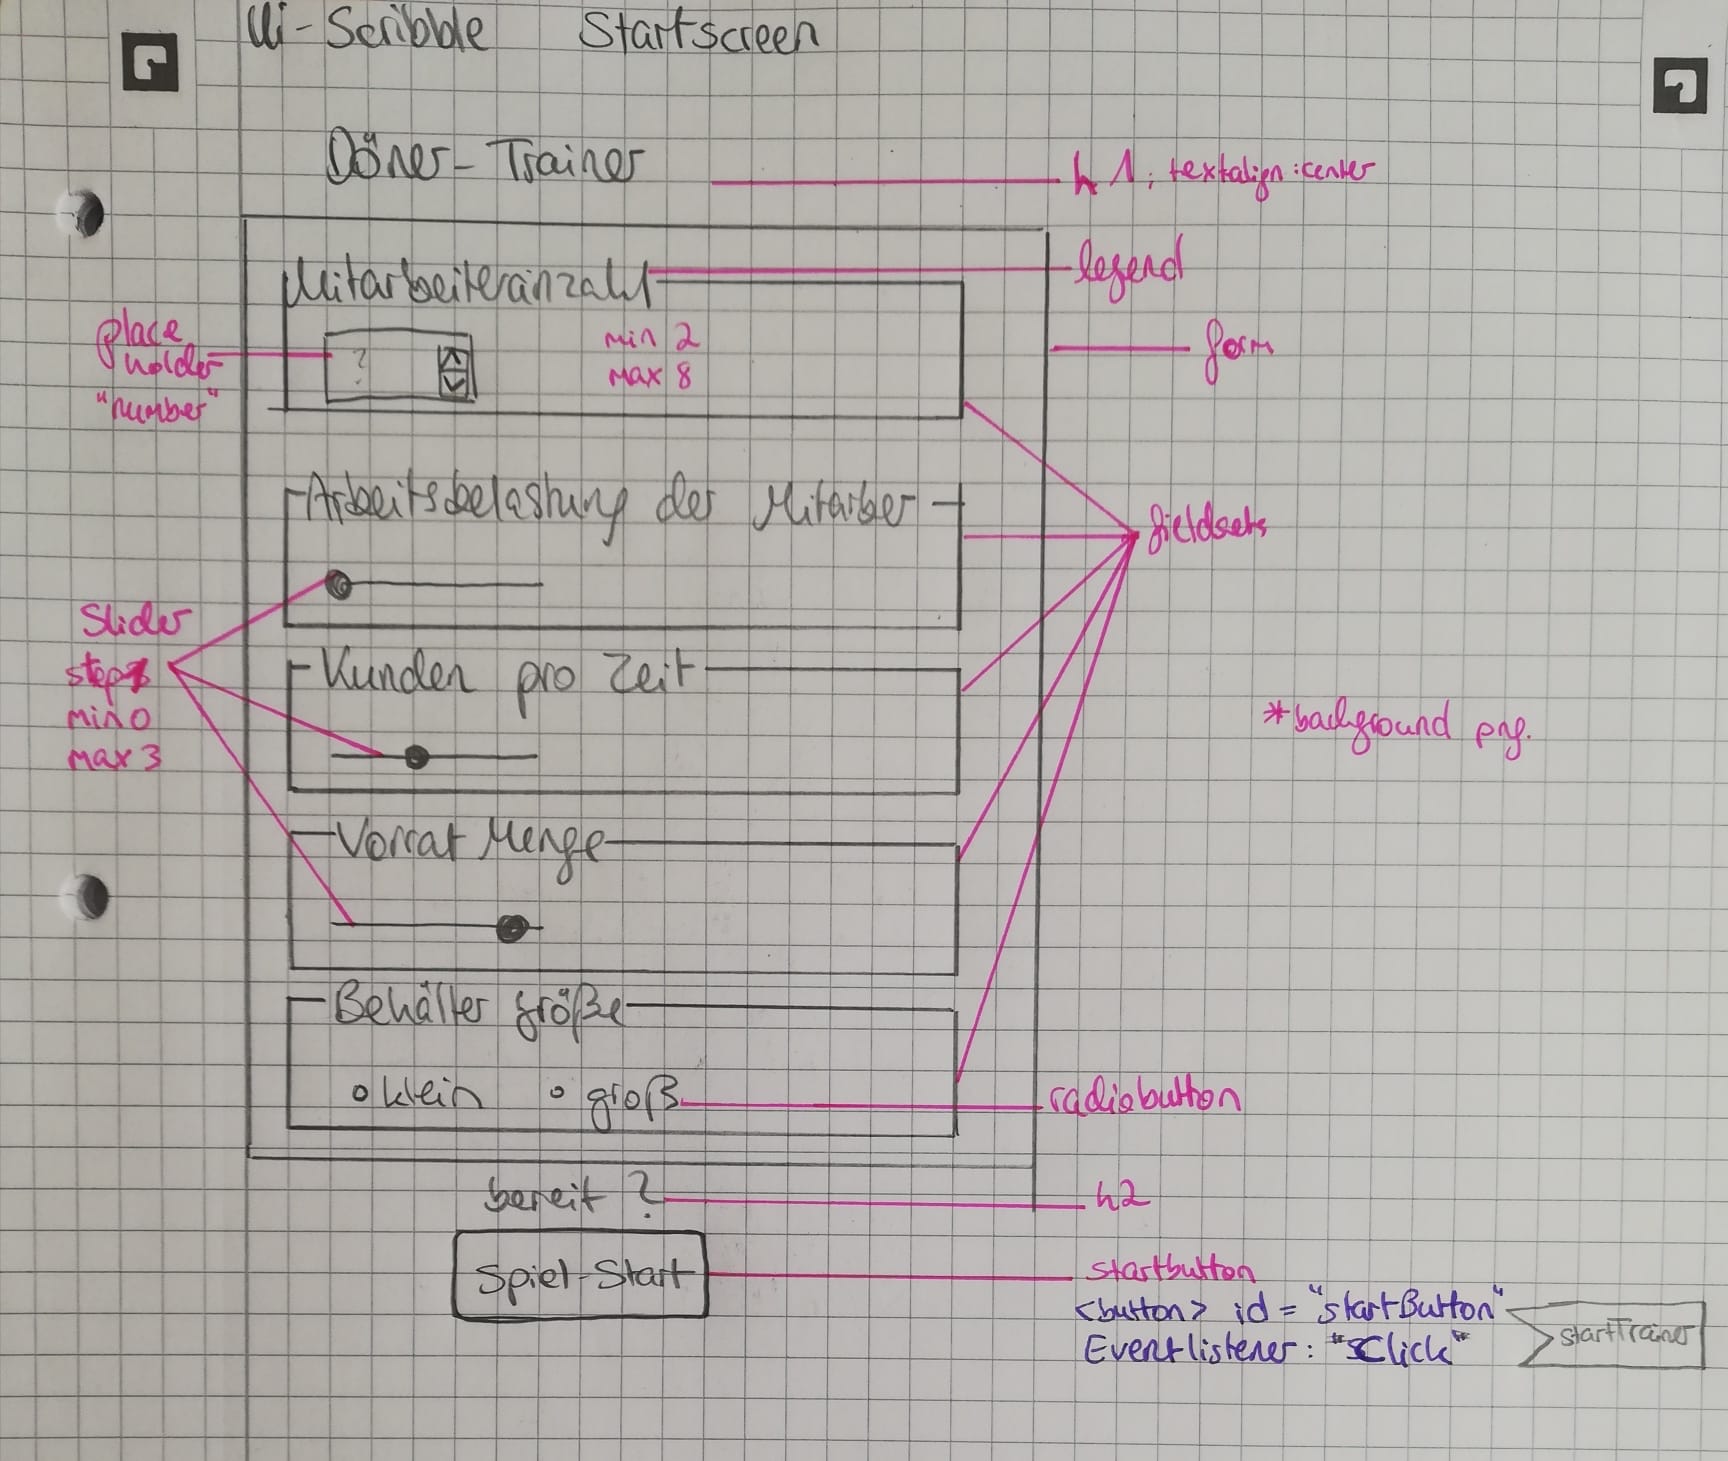 Ui-Scribble Startscreen
Döner-Trainer
h1; textalign:center
Mitarbeiteranzahl
legend
place
holder
"number"
?
min 2
max 8
form
Arbeitsbelastung der Mitarber
fieldsets
Slider
step1
min 0
max 3
Kunden pro Zeit
*background png.
Vorrat Menge
Behälter größe
klein groß
radiobutton
bereit ?
h2
Spiel-Start
startbutton
<button> id = "startButton"
Eventlistener: "Click"
startTrainer